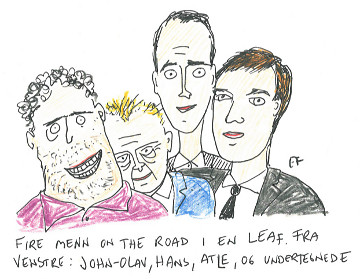 EF
FIRE MENN ON THE ROAD I EN LEAF. FRA
VENSTRE: JOHN-OLAV, HANS, ATLE, OG UNDERTEGNEDE